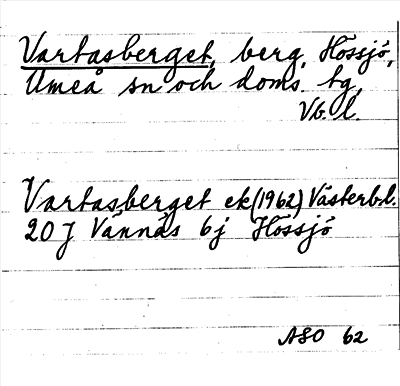 Vartasberget, berg, Hössjö,
Umeå sn och doms. tg,
Vb. l.
Vartasberget ek (1962) Västerb.l.
20 J Vännäs 6j Hössjö
ASO 62